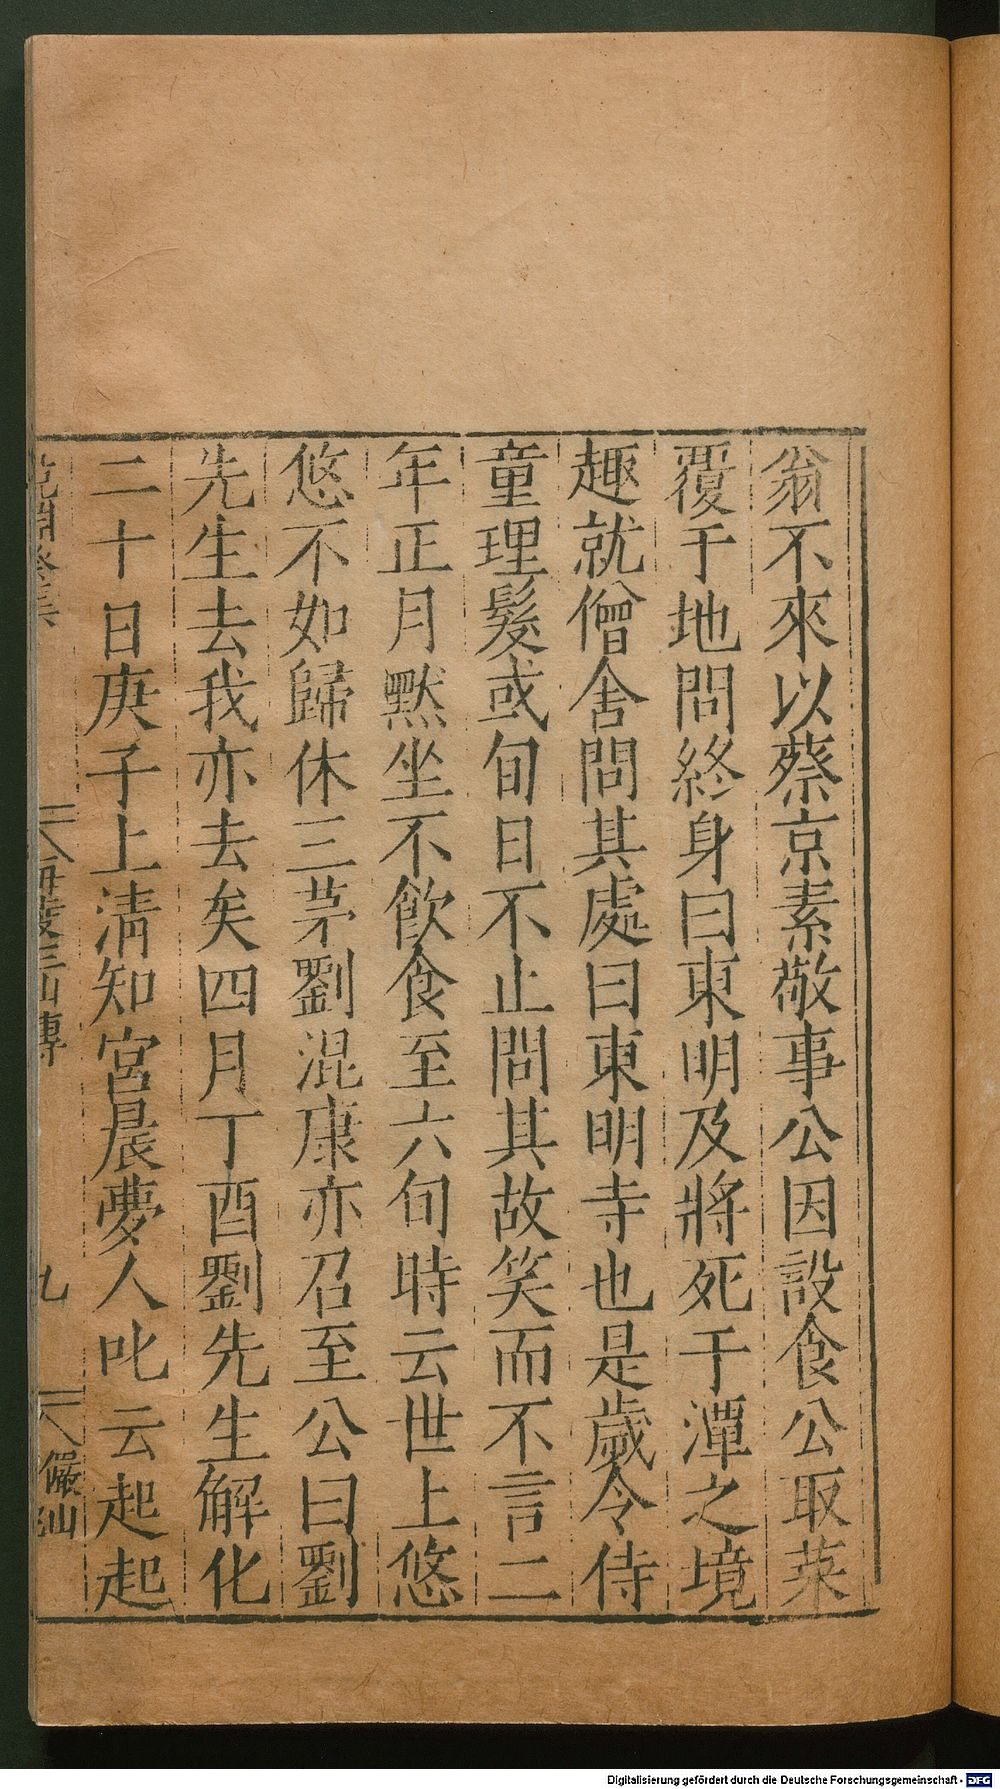 翁不來以蔡京素敬事公因設食公取菜
覆于地問終身曰東明及將死于潭之境
趣就僧舍問其處曰東明寺也是歲令侍
童理髮或旬日不止問其故笑而不言二
年正月默坐不飲食至六旬時云世上悠
悠不如歸休三茅劉混康亦召至公曰劉
先生去我亦去矣四月丁酉劉先生解化
二十日庚子上清知宮晨夢人叱云起起
海陵三仙傳
九
儼山
Digitalisierung gefördert durch die Deutsche Forschungsgemeinschaft - DFG